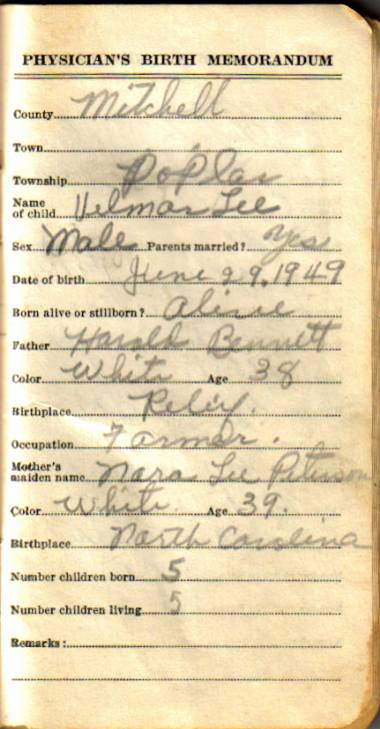 PHYSICIAN'S BIRTH MEMORANDUM
County Mitchell
Town
Township Poplar
Name of child Velmar Lee
Sex Male Parents married? Yes
Date of birth June 29, 1949
Born alive or stillborn? Alive
Father Harold Bennett
Color White Age 38
Birthplace
Occupation Farmer.
Mother's maiden name Nara Lee Peterson
Color White Age 39.
Birthplace North Carolina
Number children born 5
Number children living 5
Remarks: